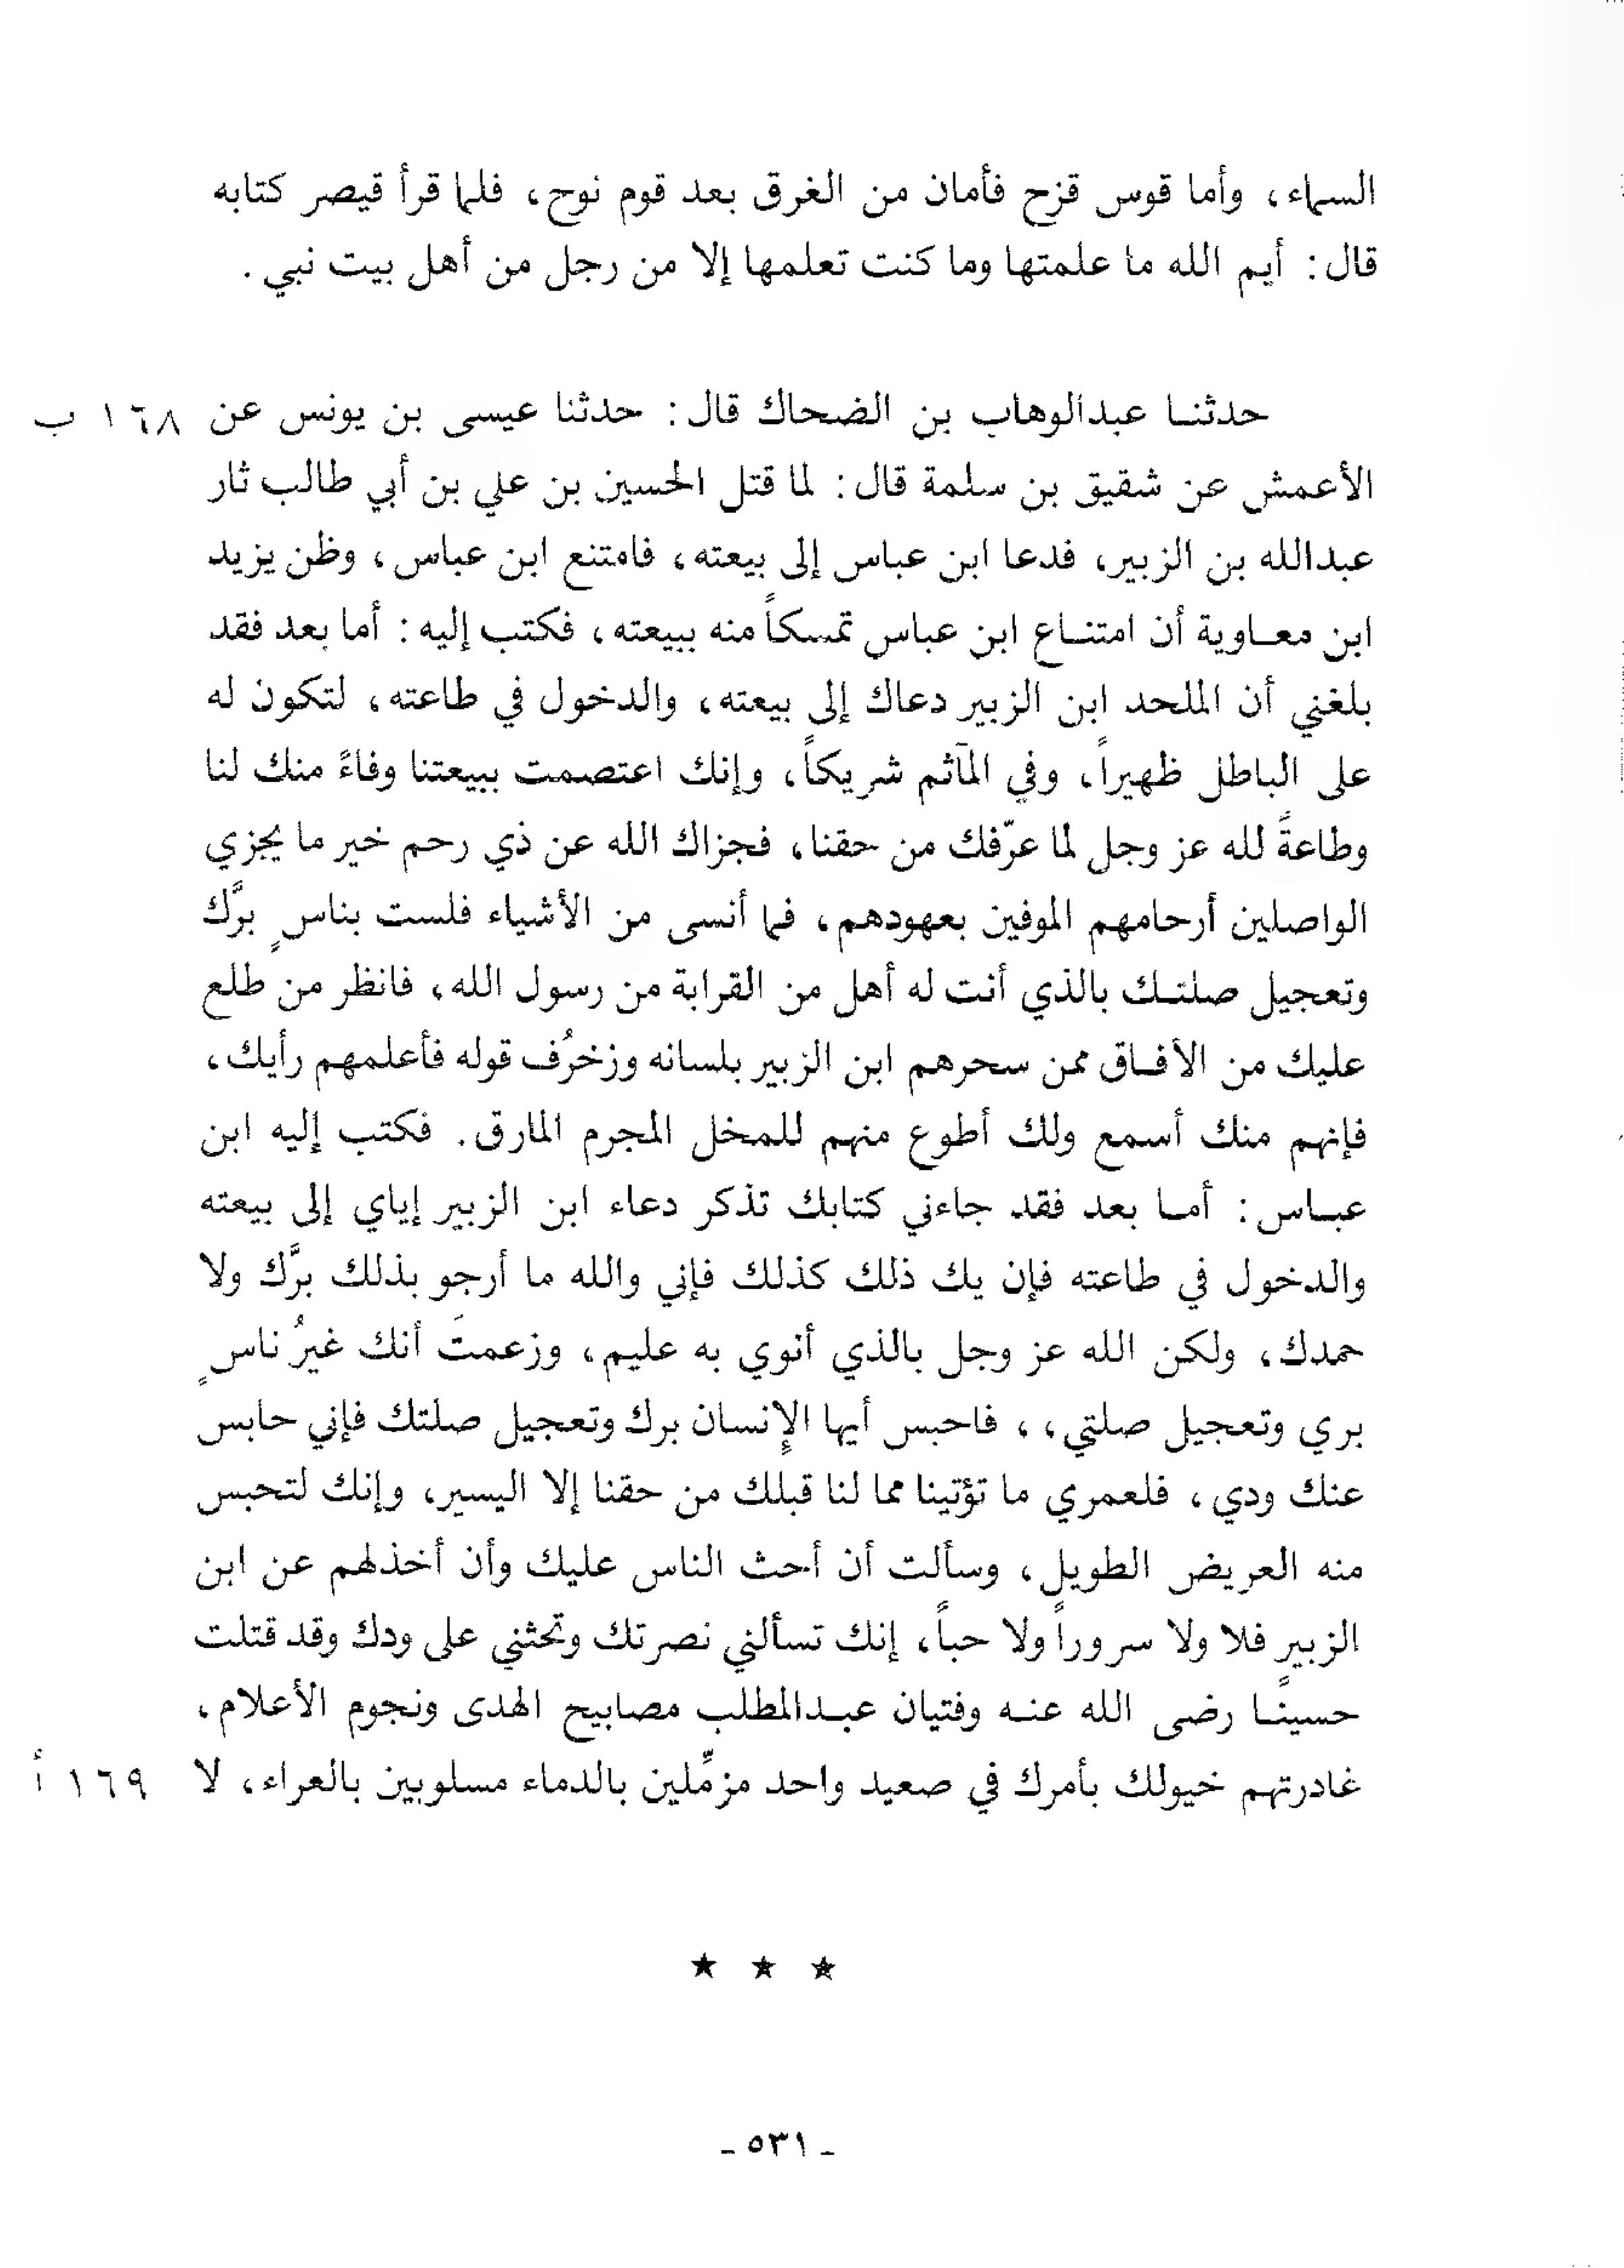 السماء، وأما قوس قزح فأمان من الغرق بعد قوم نوح، فلما قرأ قيصر كتابه
قال: أيم الله ما علمتها وما كنت تعلمها إلا من رجل من أهل بيت نبي.
حدثنا عبدالوهاب بن الضحاك قال: حدثنا عيسى بن يونس عن ١٦٨ ب
الأعمش عن شقيق بن سلمة قال: لما قتل الحسين بن علي بن أبي طالب ثار
عبدالله بن الزبير، فدعا ابن عباس إلى بيعته، فامتنع ابن عباس، وظن يزيد
ابن معاوية أن امتناع ابن عباس تمسكاً منه ببيعته، فكتب إليه: أما بعد فقد
بلغني أن الملحد ابن الزبير دعاك إلى بيعته، والدخول في طاعته، لتكون له
على الباطل ظهيراً، وفي المآثم شريكاً، وإنك اعتصمت ببيعتنا وفاءً منك لنا
وطاعةً لله عز وجل لما عرّفك من حقنا، فجزاك الله عن ذي رحم خير ما يجزي
الواصلين أرحامهم الموفين بعهودهم، فما أنسى من الأشياء فلست بناسٍ برَّك
وتعجيل صلتك بالذي أنت له أهل من القرابة من رسول الله، فانظر من طلع
عليك من الأفاق ممن سحرهم ابن الزبير بلسانه وزخرُف قوله فأعلمهم رأيك،
فإنهم منك أسمع ولك أطوع منهم للمخل المجرم المارق. فكتب إليه ابن
عباس: أما بعد فقد جاءني كتابك تذكر دعاء ابن الزبير إياي إلى بيعته
والدخول في طاعته فإن يك ذلك كذلك فإني والله ما أرجو بذلك برَّك ولا
حمدك، ولكن الله عز وجل بالذي أنوي به عليم، وزعمتَ أنك غيرُ ناسٍ
بري وتعجيل صلتي،، فاحبس أيها الإنسان برك وتعجيل صلتك فإني حابس
عنك ودي، فلعمري ما تؤتينا مما لنا قبلك من حقنا إلا اليسير، وإنك لتحبس
منه العريض الطويل، وسألت أن أحث الناس عليك وأن أخذلهم عن ابن
الزبير فلا ولا سروراً ولا حباً، إنك تسألني نصرتك وتحثني على ودك وقد قتلت
حسينًا رضى الله عنه وفتيان عبدالمطلب مصابيح الهدى ونجوم الأعلام،
غادرتهم خيولك بأمرك في صعيد واحد مزمَّلين بالدماء مسلوبين بالعراء، لا ١٦٩ أ
★ ★ ★
- ٥٣١ -